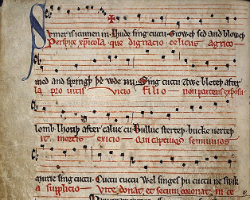 Sumer is icumen in. Lhude sing cuccu. Groweth sed and bloweth
Perspice xpicola que dignacio celicus agrico
med and springth the wde nu. Sing cuccu Awe bleteth after
la pro uitis vicio filio non parcens exposu
lomb. lhouth after calue cu. Bulluc sterteth. bucke uerteth
it mortis exicio Qui captiuos semiuiuos
murie sing cuccu. Cuccu cuccu Wel singes thu cuccu ne swik
a supplicio Vite donat et secum coronat in ce